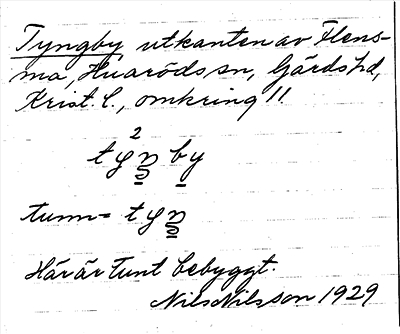 Tyngby utkanten av Flens-
ma, Huaröds sn, Gärds hd,
Krist. l., omkring 11.
by
tunn=
Här är tunt bebyggt.
Nils Nilsson 1929